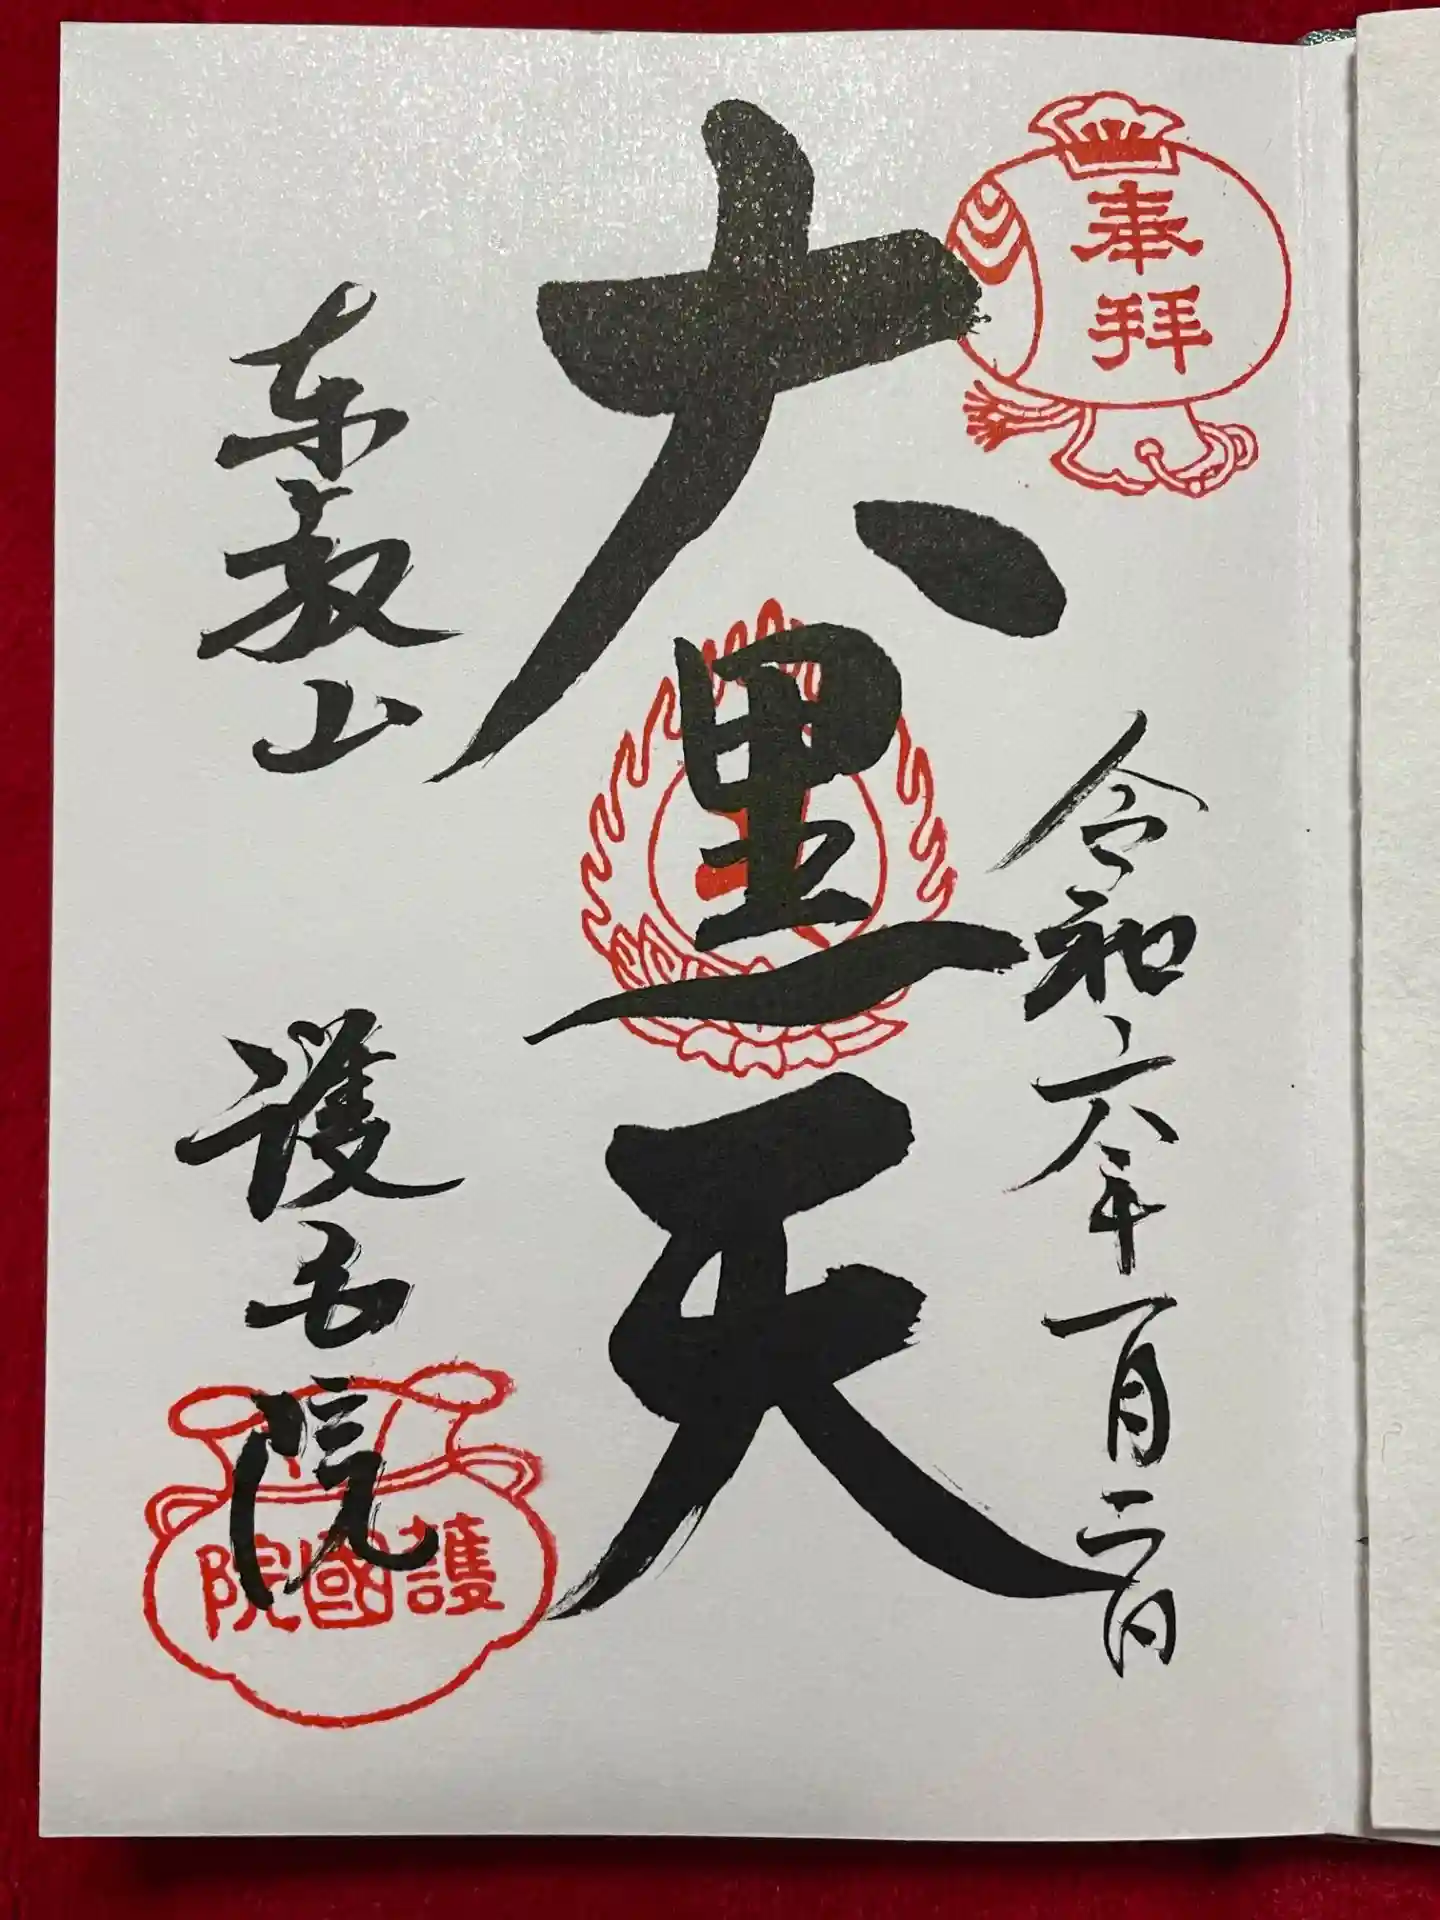 奉拝
令和六年一月二日
大黒天
东叡山
護国院
護國院